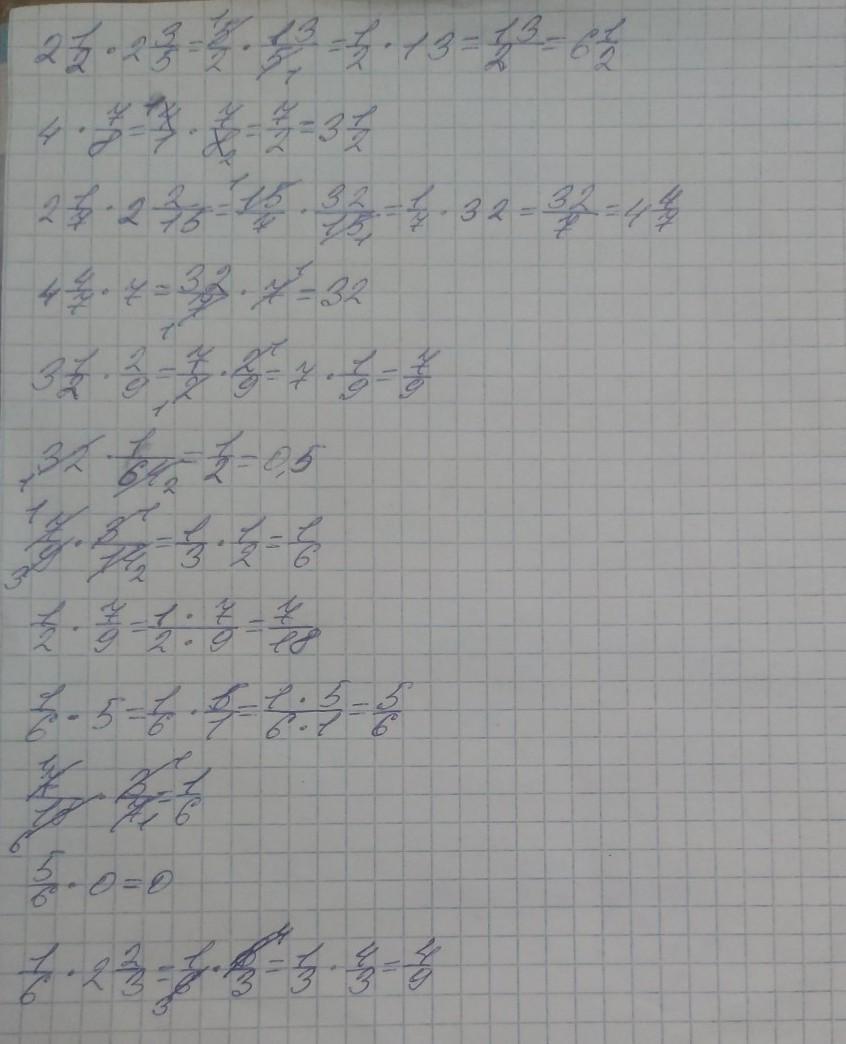 2 1/2 · 2 3/5 = 5/2 · 13/5 = 1/2 · 13 = 13/2 = 6 1/2
4 · 7/8 = 4/1 · 7/8 = 7/2 = 3 1/2
2 1/7 · 2 2/15 = 15/7 · 32/15 = 1/7 · 32 = 32/7 = 4 4/7
4 4/7 · 7 = 32/7 · 7 = 32
3 1/2 · 2/9 = 7/2 · 2/9 = 7 · 1/9 = 7/9
32 · 1/64 = 1/2 = 0,5
7/9 · 3/14 = 1/3 · 1/2 = 1/6
1/2 · 7/9 = 1 · 7/2 · 9 = 7/18
1/6 · 5 = 1/6 · 5/1 = 1 · 5/6 · 1 = 5/6
7/18 · 3/7 = 1/6
5/6 · 0 = 0
1/6 · 2 2/3 = 1/6 · 8/3 = 1/3 · 4/3 = 4/9